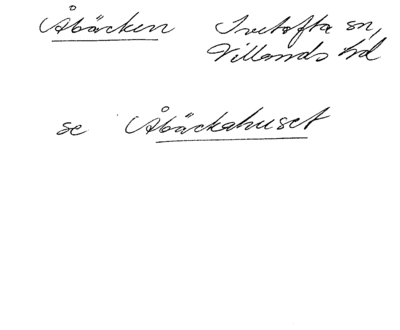 Åbäcken Ivetofta sn,
Villands hd
se Åbäckahuset